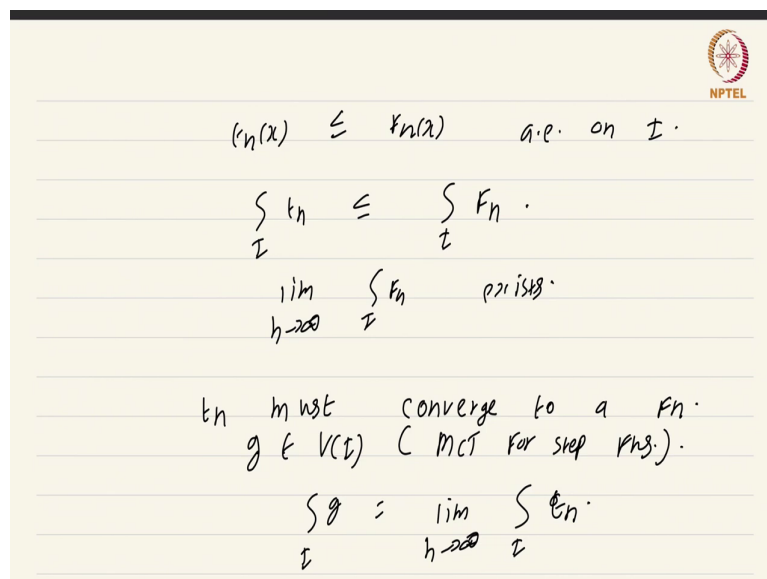 NPTEL
tn(x) ≤ Fn(x) a.e. on I.
∫_I tn ≤ ∫_I Fn.
lim_{n→∞} ∫_I Fn exists.
tn must converge to a Fn.
g ∈ V(I) (MCT For step Fns.).
∫_I g = lim_{n→∞} ∫_I tn.